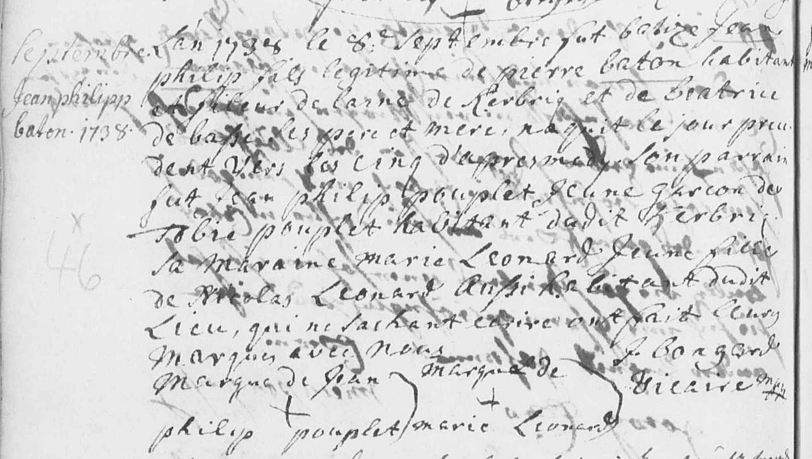 Septembre
Jean philipp
baton. 1738.
46
L'an 1738 le 8e Septembre fut batizé Jean
philip fils legitime de pierre baton habitant
et fileur de laine de Kerbrig et de beatrice
de ses pere et mere, naquit le jour prece
dent vers les cinq d'apresmedy Son parrain
fut Jean philip pouplet Jeune garcon de
Tobie pouplet habitant dudit Kerbrig
Sa Maraine marie Leonard Jeune fille
de Nicolas Leonard Aussi habitant dudit
Lieu, qui ne sachant ecrire ont fait leurs
Marques avec Nous
J bongard
Vicaire
Marque de Jean
philip pouplet
marque de
marie Leonard